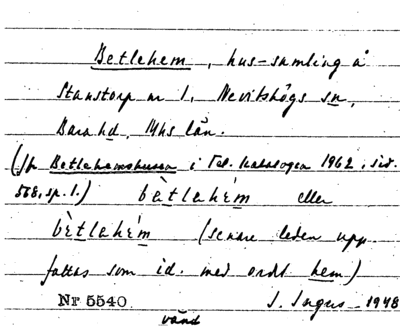 Betlehem, hus-samling å
Stanstorp nr 1, Nevitshögs sn,
Bara hd, Mhs län.
(Jfr Betlehemshusen i Tel. katalogen 1962, sid.
568, sp. 1.) bètlehém eller
bètlehém (senare leden upp-
fattas som id. med ordt hem)
Nr 5540 J. Ingers 1948
vänd